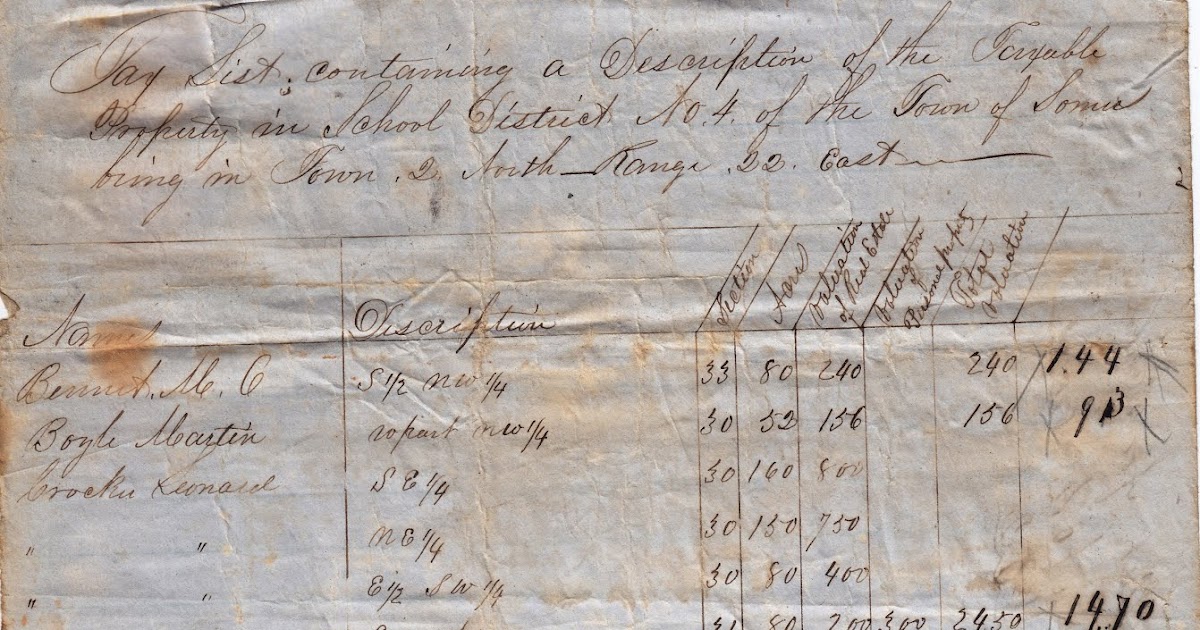 Tax List, containing a Description of the Taxable
Property in School District No. 4. of the Town of Somers
being in Town .2. North - Range .22. East
Names Description Section Acres Valuation of Real Estate Valuation Personal property Total valuation
Bennet. M. C S 1/2 NW 1/4 33 80 240 240 1.44
Boyle Martin w part nw 1/4 30 52 156 156 93
Crocker Leonard S E 1/4 30 160 800
" " N E 1/4 30 150 750
" " E 1/2 S W 1/4 30 80 400
31 80 200 300 2450 14.70